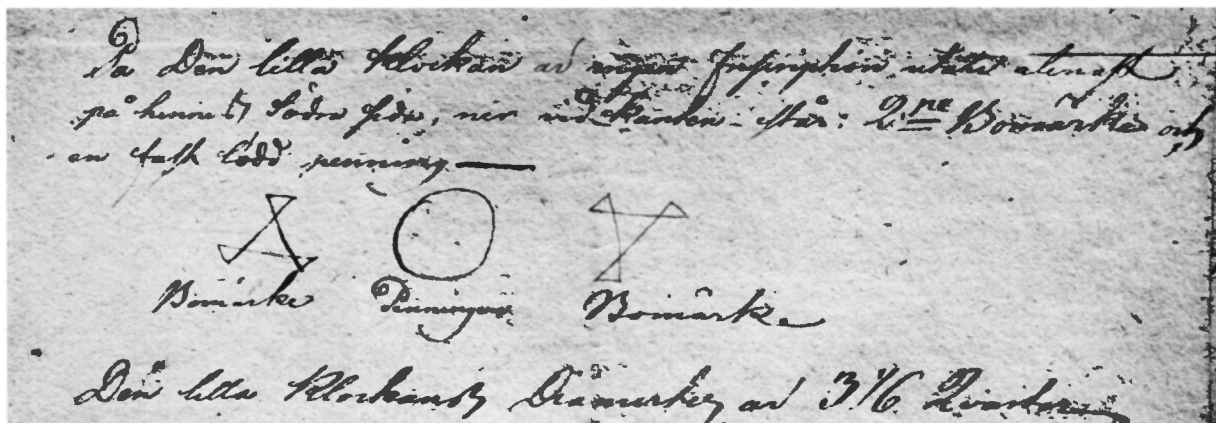 6)
På Den lilla Klockan är ingen Inscription utan alenast
på hennes Södra sida, ner vid Kanten står: 2:ne Bomärke och
en fast lödd penning
Bomärke Penningen Bomärke
Den lilla Klockans Diameter är 3 1/6 Qvarter